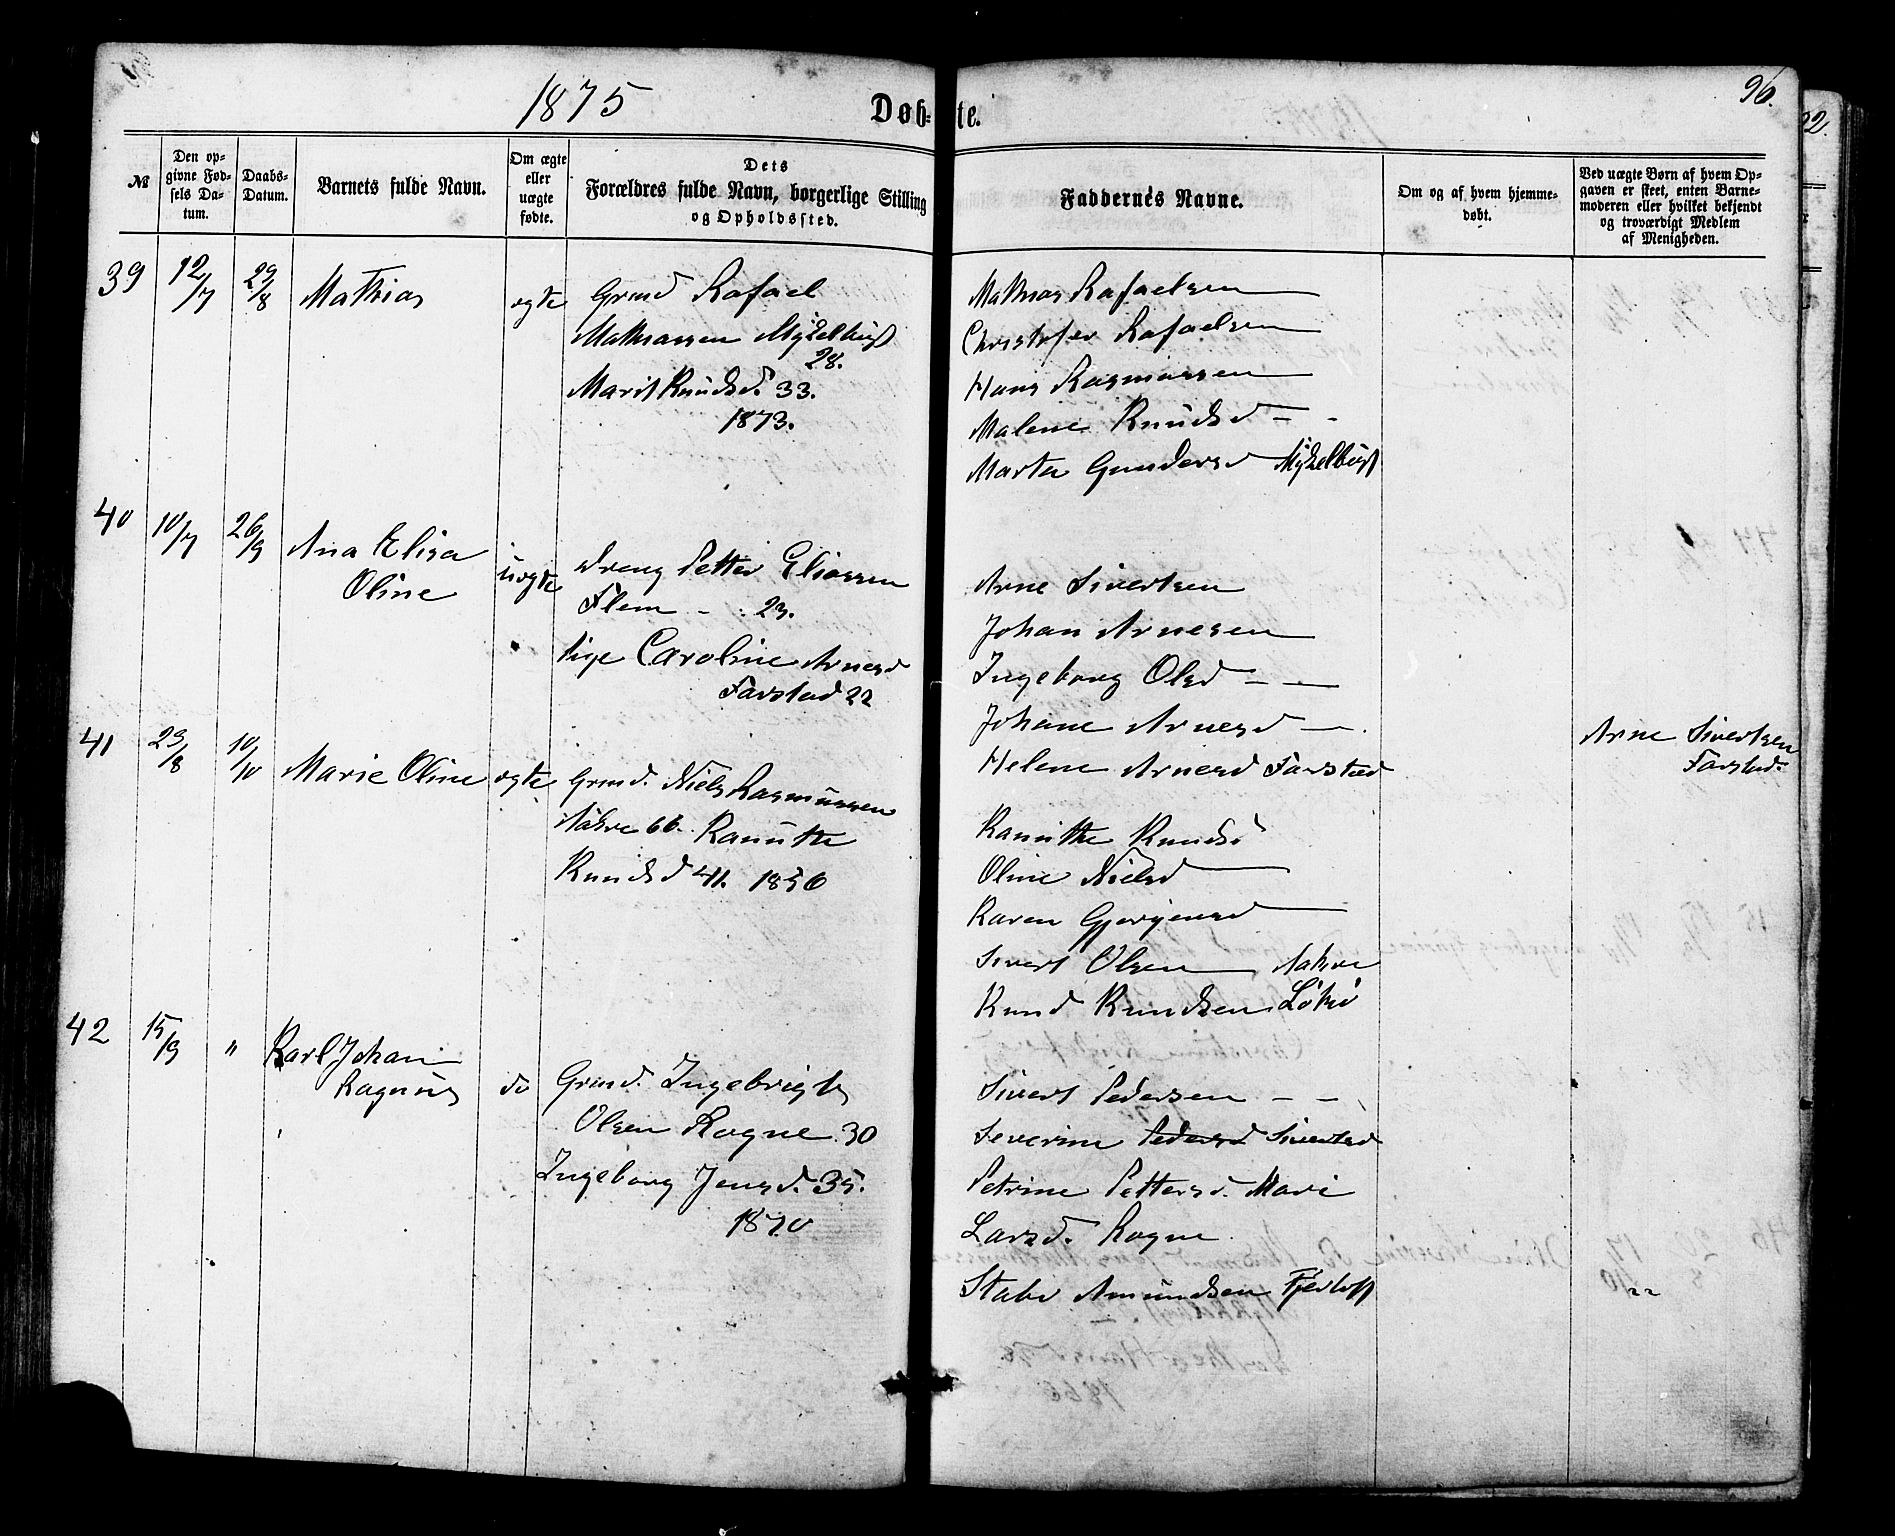 1875
Døb-
te.
96.
22.
№
Den op-
givne Fød-
sels Da-
tum.
Daabs-
Datum.
Barnets fulde Navn.
Om ægte
eller
uægte
fødte.
Dets
Forældres fulde Navn, borgerlige Stilling
og Opholdssted.
Faddernes Navne.
Om og af hvem hjemme-
døbt.
Ved uægte Børn af hvem Op-
gaven er skeet, enten Barne-
moderen eller hvilket bekjendt
og troværdigt Medlem
af Menigheden.
39 12/7 29/8 Mathias ægte Grmd Rafael
Mathiassen Myklebust
28.
Marit Knudsd. 33.
1873.
Mathias Rafaelsen
Christofer Rafaelsen
Hans Rasmussen
Malene Knudsd - -
Marta Gundersd Myklebust
40 10/7 26/9 Ana Elisa
Oline
uægte
Dreng Petter Eliassen
Flem - 23.
Pige Caroline Arnesd
Farstad 22
Arne Sivertsen
Johan Arnesen
Ingeborg Olsd - -
Johane Arnesd -
Helene Arnesd Farstad
Arne Sivertsen
Farstad.
41 23/8 10/10 Marie Oline ægte Grmd. Niels Rasmussen
Aakre 66. Kanutte
Knudsd 41. 1856
Kanutte Knudsd
Oline Nielsd
Karen Gjørgensd
Sivert Olsen Aakre
Knud Knudsen
42 15/9 " Karl Johan
Ragnus
do Grmd. Ingebrigt
Olsen Rogne 30
Ingeborg Jensd. 35.
1870
Sivert Pedersen - -
Severine Pedersd Sivertsd
Petrine Pettersd. Mari
Larsd. Rogne
Amundsen Fjørtoft